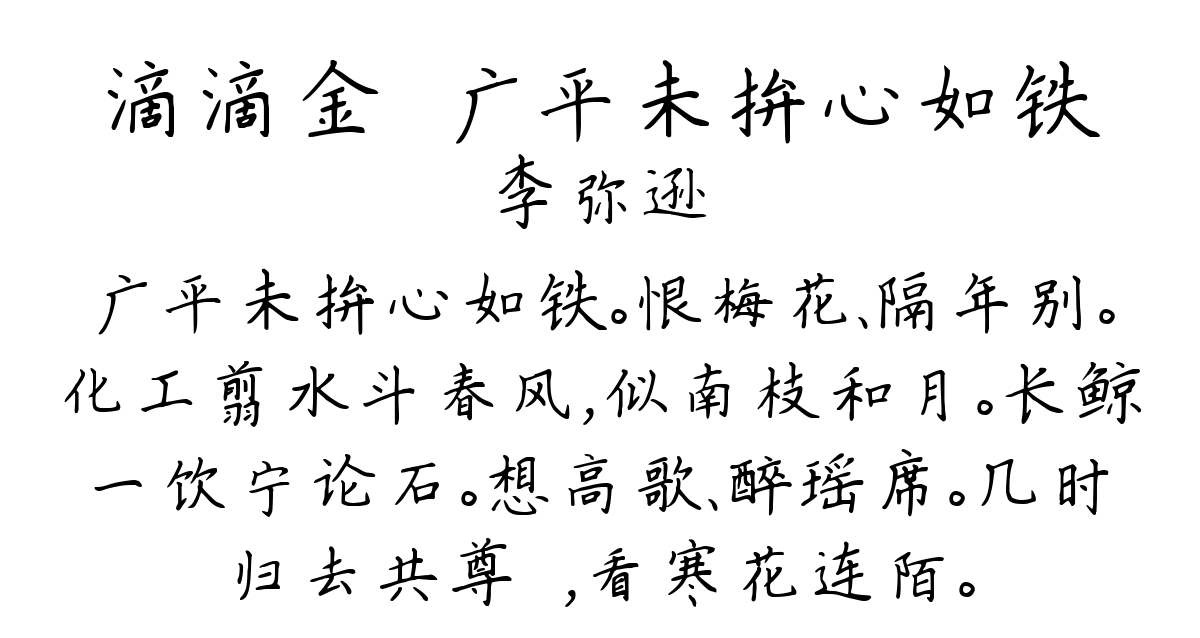 滴滴金 广平未拚心如铁
李弥逊
广平未拚心如铁。恨梅花、隔年别。
化工翦水斗春风,似南枝和月。长鲸
一饮宁论石。想高歌、醉瑶席。几时
归去共尊 ,看寒花连陌。